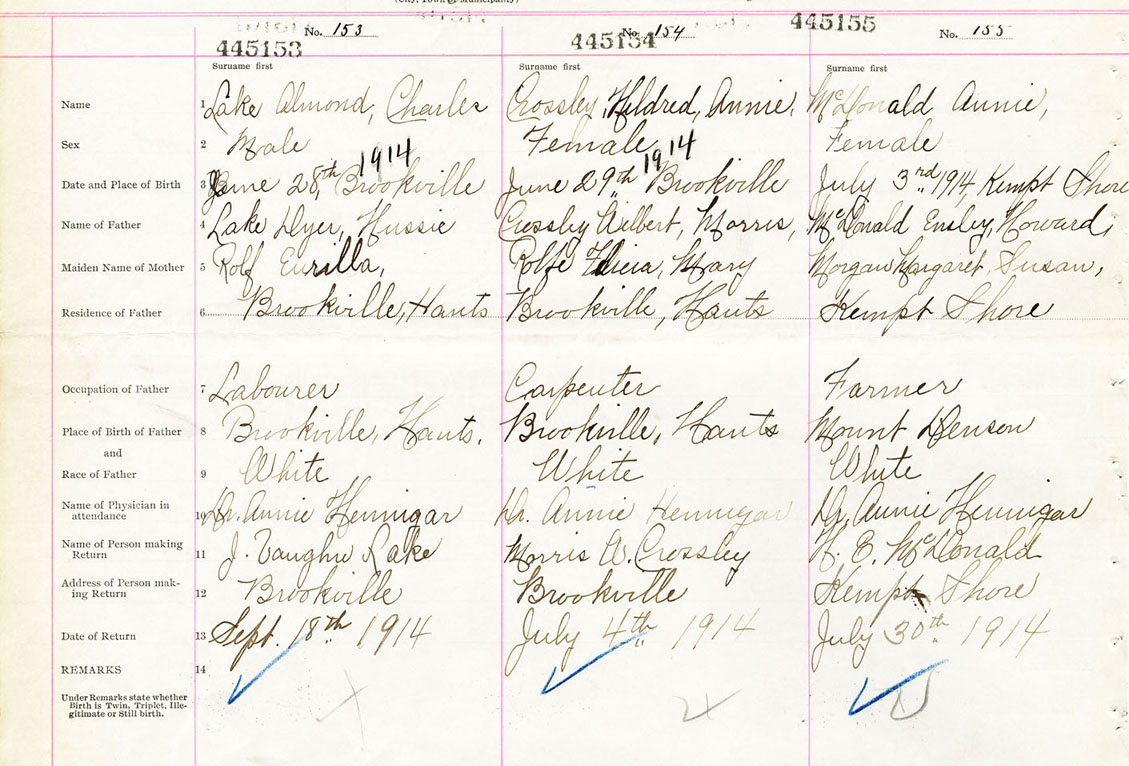 (City, Town or Municipality)
No. 153 No. 154 No. 155
445153 445154 445155
Surname first Surname first Surname first
Name 1 Lake Almond, Charles Crossley, Hildred, Annie. McDonald Annie,
Sex 2 Male Female Female
1914 1914
Date and Place of Birth 3 June 28,th Brookville June 29th Brookville July 3rd 1914, Kempt Shore
Name of Father 4 Lake Dyer, Hussie Crossley Wilbert, Morris, McDonald Ensley, Howard,
Maiden Name of Mother 5 Rolf Eurilla, Rolfe Mary Morgan Margaret, Susan,
Residence of Father 6 Brookville, Hants Brookville, Hants Kempt Shore
Occupation of Father 7 Labourer Carpenter Farmer
Place of Birth of Father 8 Brookville, Hants. Brookville, Hants Mount Denson
and
Race of Father 9 White White White
Name of Physician in
attendance 10 Dr. Annie Hennigar Dr. Annie Hennigar Dr. Annie Hennigar
Name of Person making
Return 11 J. Vaughn Lake Morris W. Crossley H. E. McDonald
Address of Person mak-
ing Return 12 Brookville Brookville Kempt Shore
Date of Return 13 Sept. 18th 1914 July 4th 1914 July 30th 1914
REMARKS 14
Under Remarks state whether
Birth is Twin, Triplet, Ille-
gitimate or Still birth.